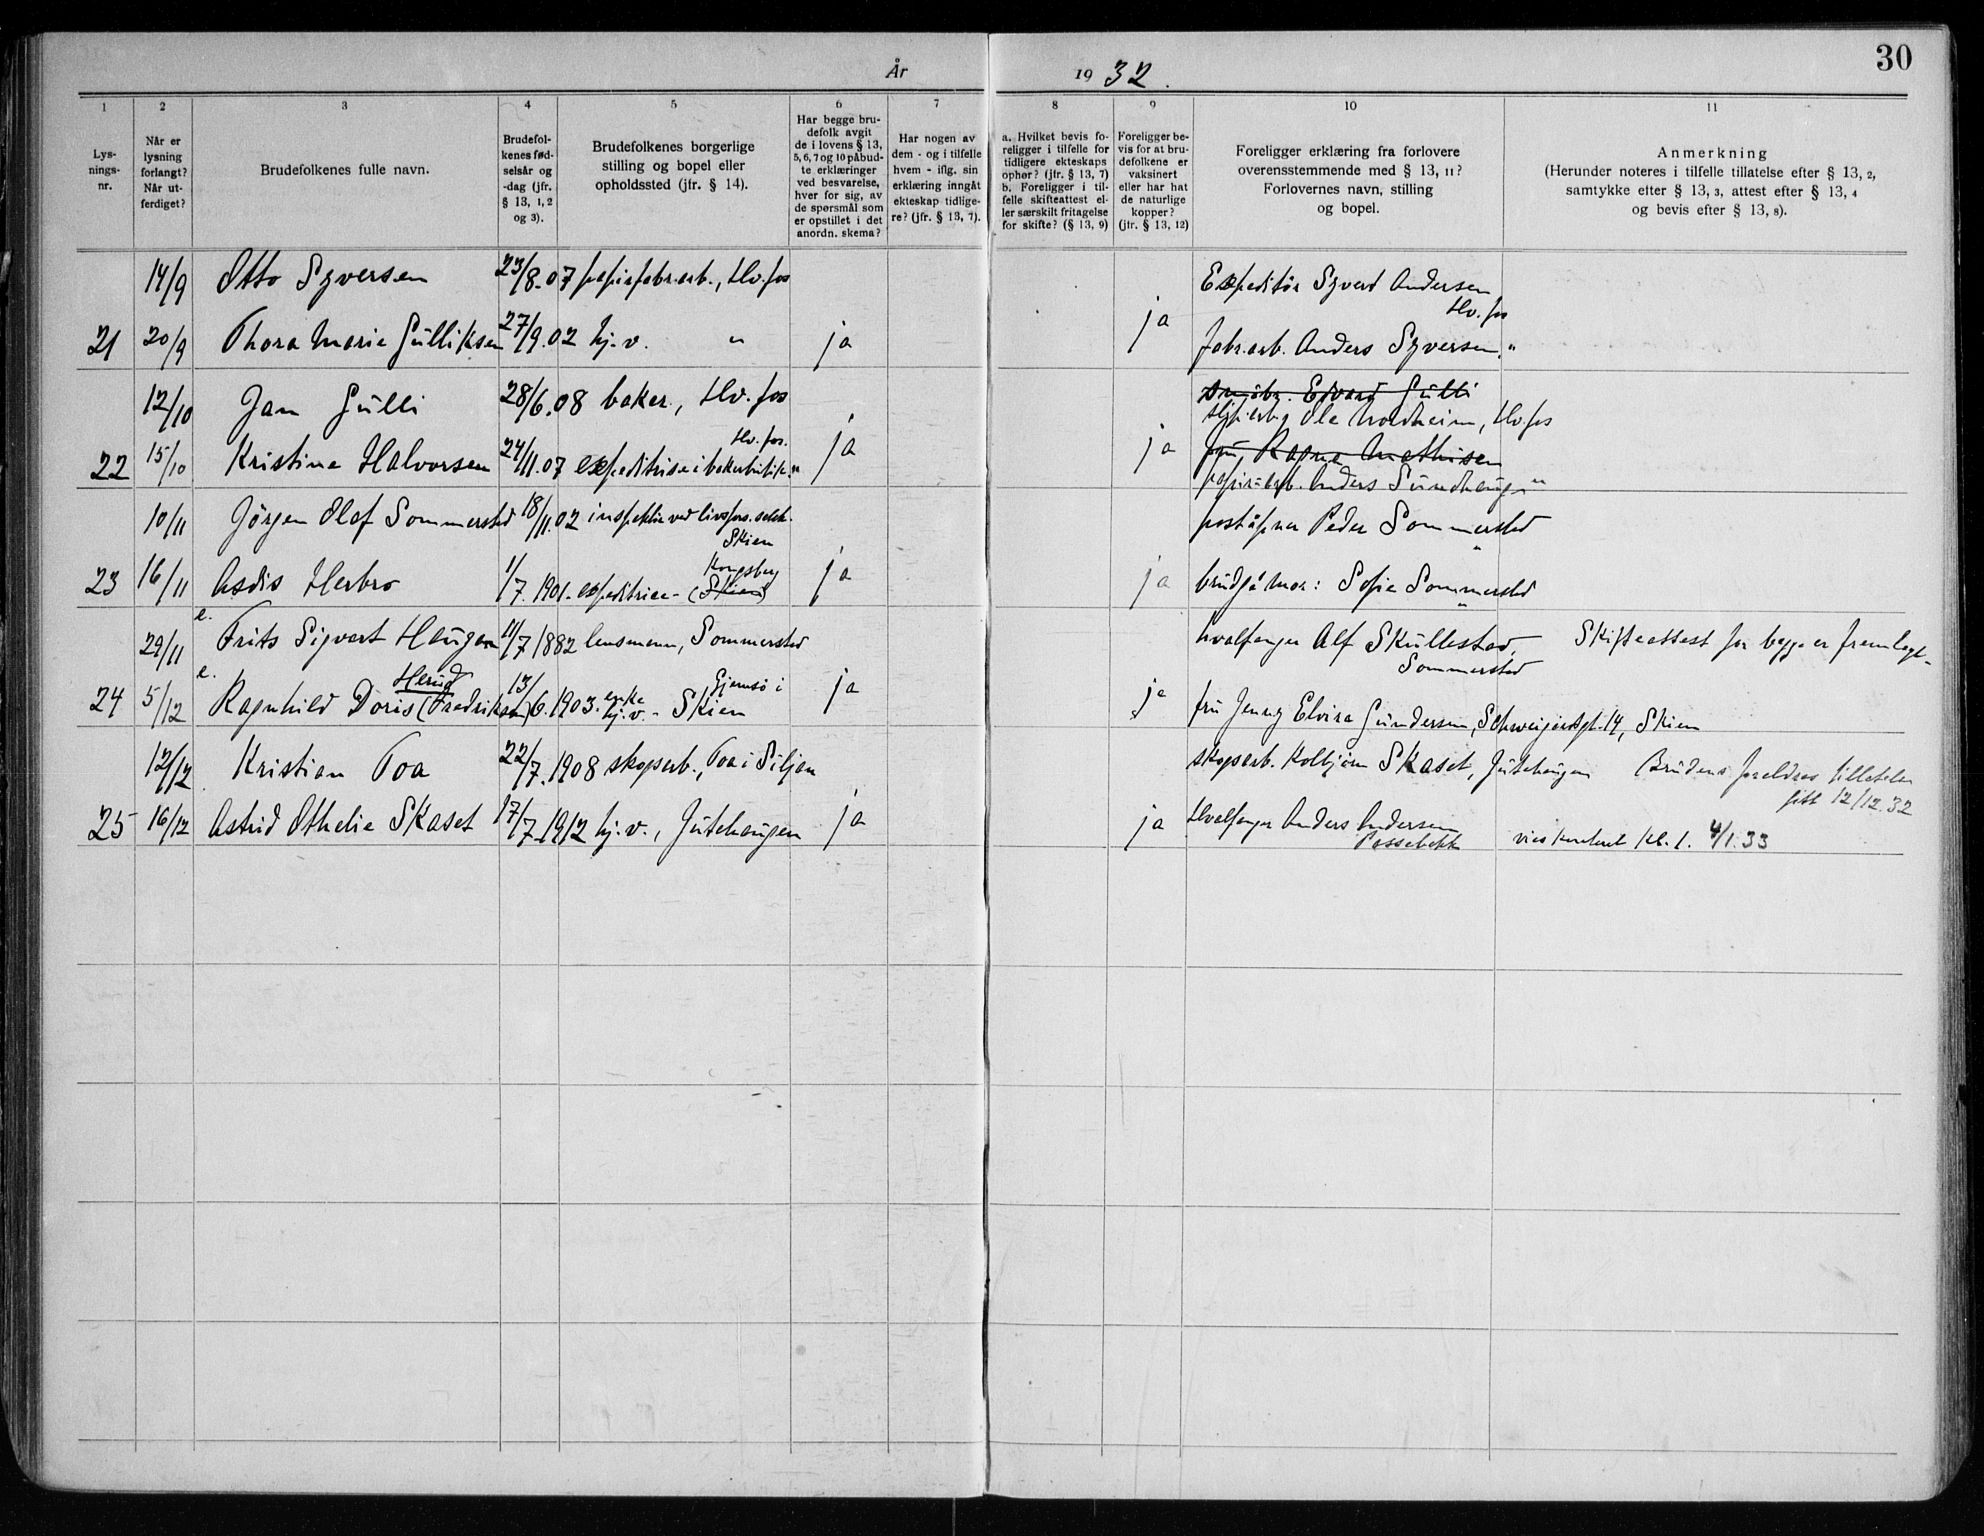 30
År 1932.
1 2 3 4 5 6 7 8 9 10 11
Lysningsnr.
Når er lysning forlangt? Når utferdiget?
Brudefolkenes fulle navn.
Brudefolkenes fødselsår og -dag (jfr. § 13, 1, 2 og 3).
Brudefolkenes borgerlige stilling og bopel eller opholdssted (jfr. § 14).
Har begge brudefolk avgit de i lovens § 13, 5, 6, 7 og 10 påbudte erklæringer ved besvarelse, hver for sig, av de spørsmål som er opstillet i det anordn. skema?
Har nogen av dem - og i tilfelle hvem - iflg. sin erklæring inngått ekteskap tidligere? (jfr. § 13, 7).
a. Hvilket bevis foreligger i tilfelle for tidligere ekteskaps ophør? (jfr. § 13, 7) b. Foreligger i tilfelle skifteattest eller særskilt fritagelse for skifte? (§ 13, 9)
Foreligger bevis for at brudefolkene er vaksinert eller har hat de naturlige kopper? (jfr. § 13, 12)
Foreligger erklæring fra forlovere overensstemmende med § 13, 11? Forlovernes navn, stilling og bopel.
Anmerkning (Herunder noteres i tilfelle tillatelse efter § 13, 2, samtykke efter § 13, 3, attest efter § 13, 4 og bevis efter § 13, 8).
14/9 Otto Syversen 23/8.07 papirfabr.arb., Hv.fos Expeditør Syvert Andersen
Hv.fos
21 20/9 Thora Marie Gulliksen 27/9.02 hj.v. " ja ja fabr.arb. Anders Syversen "
12/10 Jan Gulli 28/6.08 baker, Hv.fos Edvard Gulli
Ole Nordheim, Hv.fos
Hv.fos.
22 15/10 Kristine Halvorsen 24/11.07 expeditrise i bakerbutik " ja ja fru, Ragna Mathisen
papir-arb. Anders Sundhaugen "
10/11 Jörgen Olaf Sommerstad 18/11.02 inspektör ved livsfors.selsk. poståpner Peder Sommerstad
Skien "
Kongsberg
23 16/11 Asdis Herbro 1/7.1901. expeditrice - (Skien) ja ja brudg. mor: Sofie Sommerstad
"
e.
29/11 Frits Sigvart Haugen 11/7 1882 lensmann, Sommerstad hvalfanger Alf Skullestad, Skifteattest for begge er fremlagt.
Sommerstad
e. Herud enke Gjemsö i
24 5/12 Ragnhild Doris (Fredriksen) 13/6.1903. hj.v. - Skien ja ja fru Jenny Elvira Gundersen, Schweigaardsgt. 14, Skien
12/12 Kristian Toa 22/7.1908 skogsarb., Toa i Siljan skogsarb. Kolbjörn Skaset, Jutehaugen Brudens foreldres tillatelse
gitt 12/12.32
25 16/12 Astrid Othelie Skaset 17/7.1912 hj.v., Jutehaugen ja ja Hvalfanger Anders Andersen
Passebekk kl. 1. 4/1.33